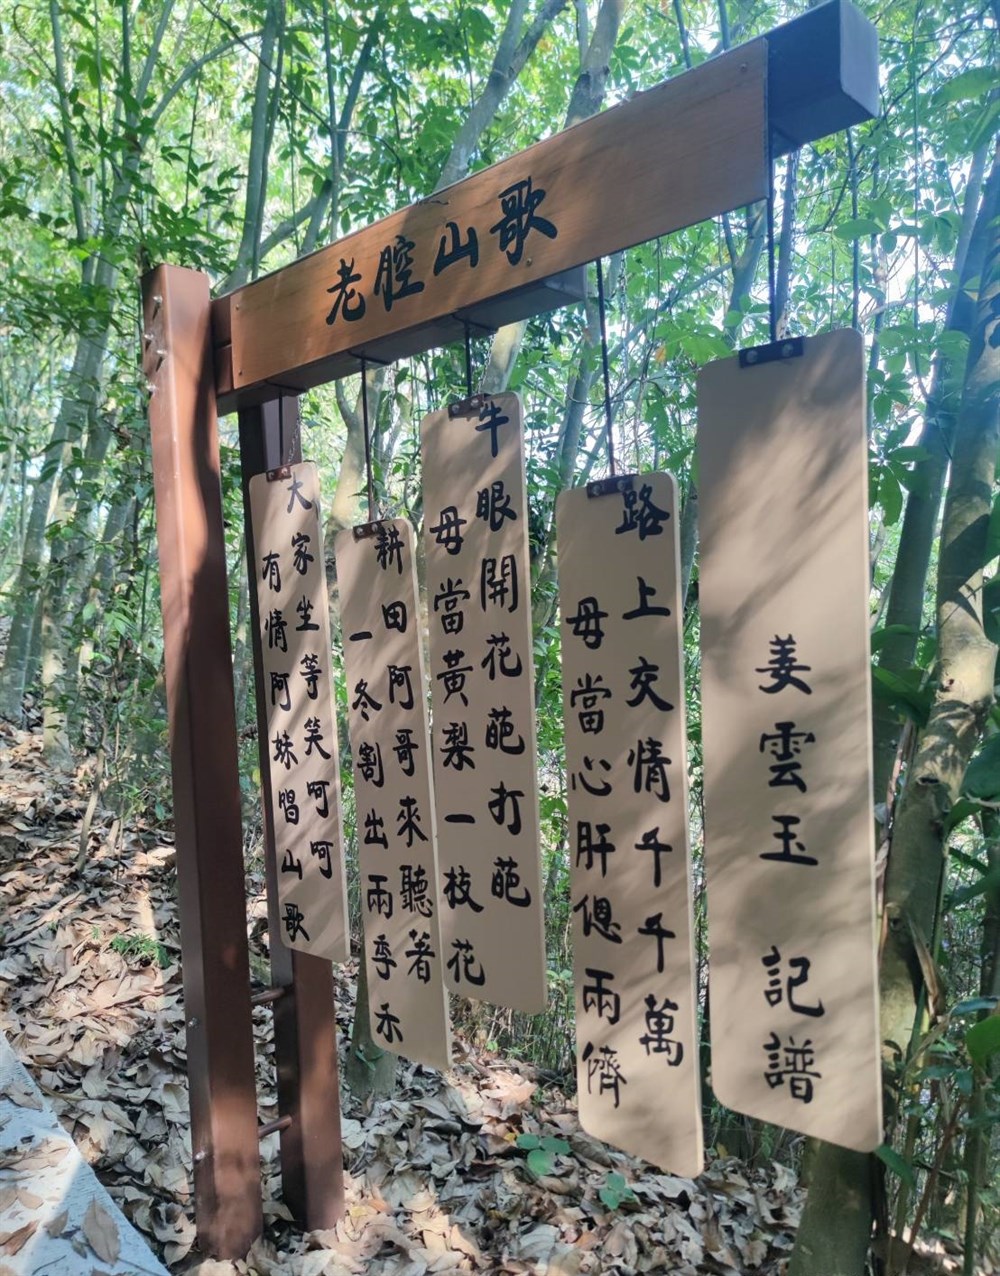 老腔山歌
大家坐等笑呵呵
有情阿妹唱山歌
耕田阿哥來聽著
一冬割出兩季禾
牛眼開花葩打葩
毋當黃梨一枝花
路上交情千千萬
毋當心肝𫣆兩儕
姜雲玉 記譜